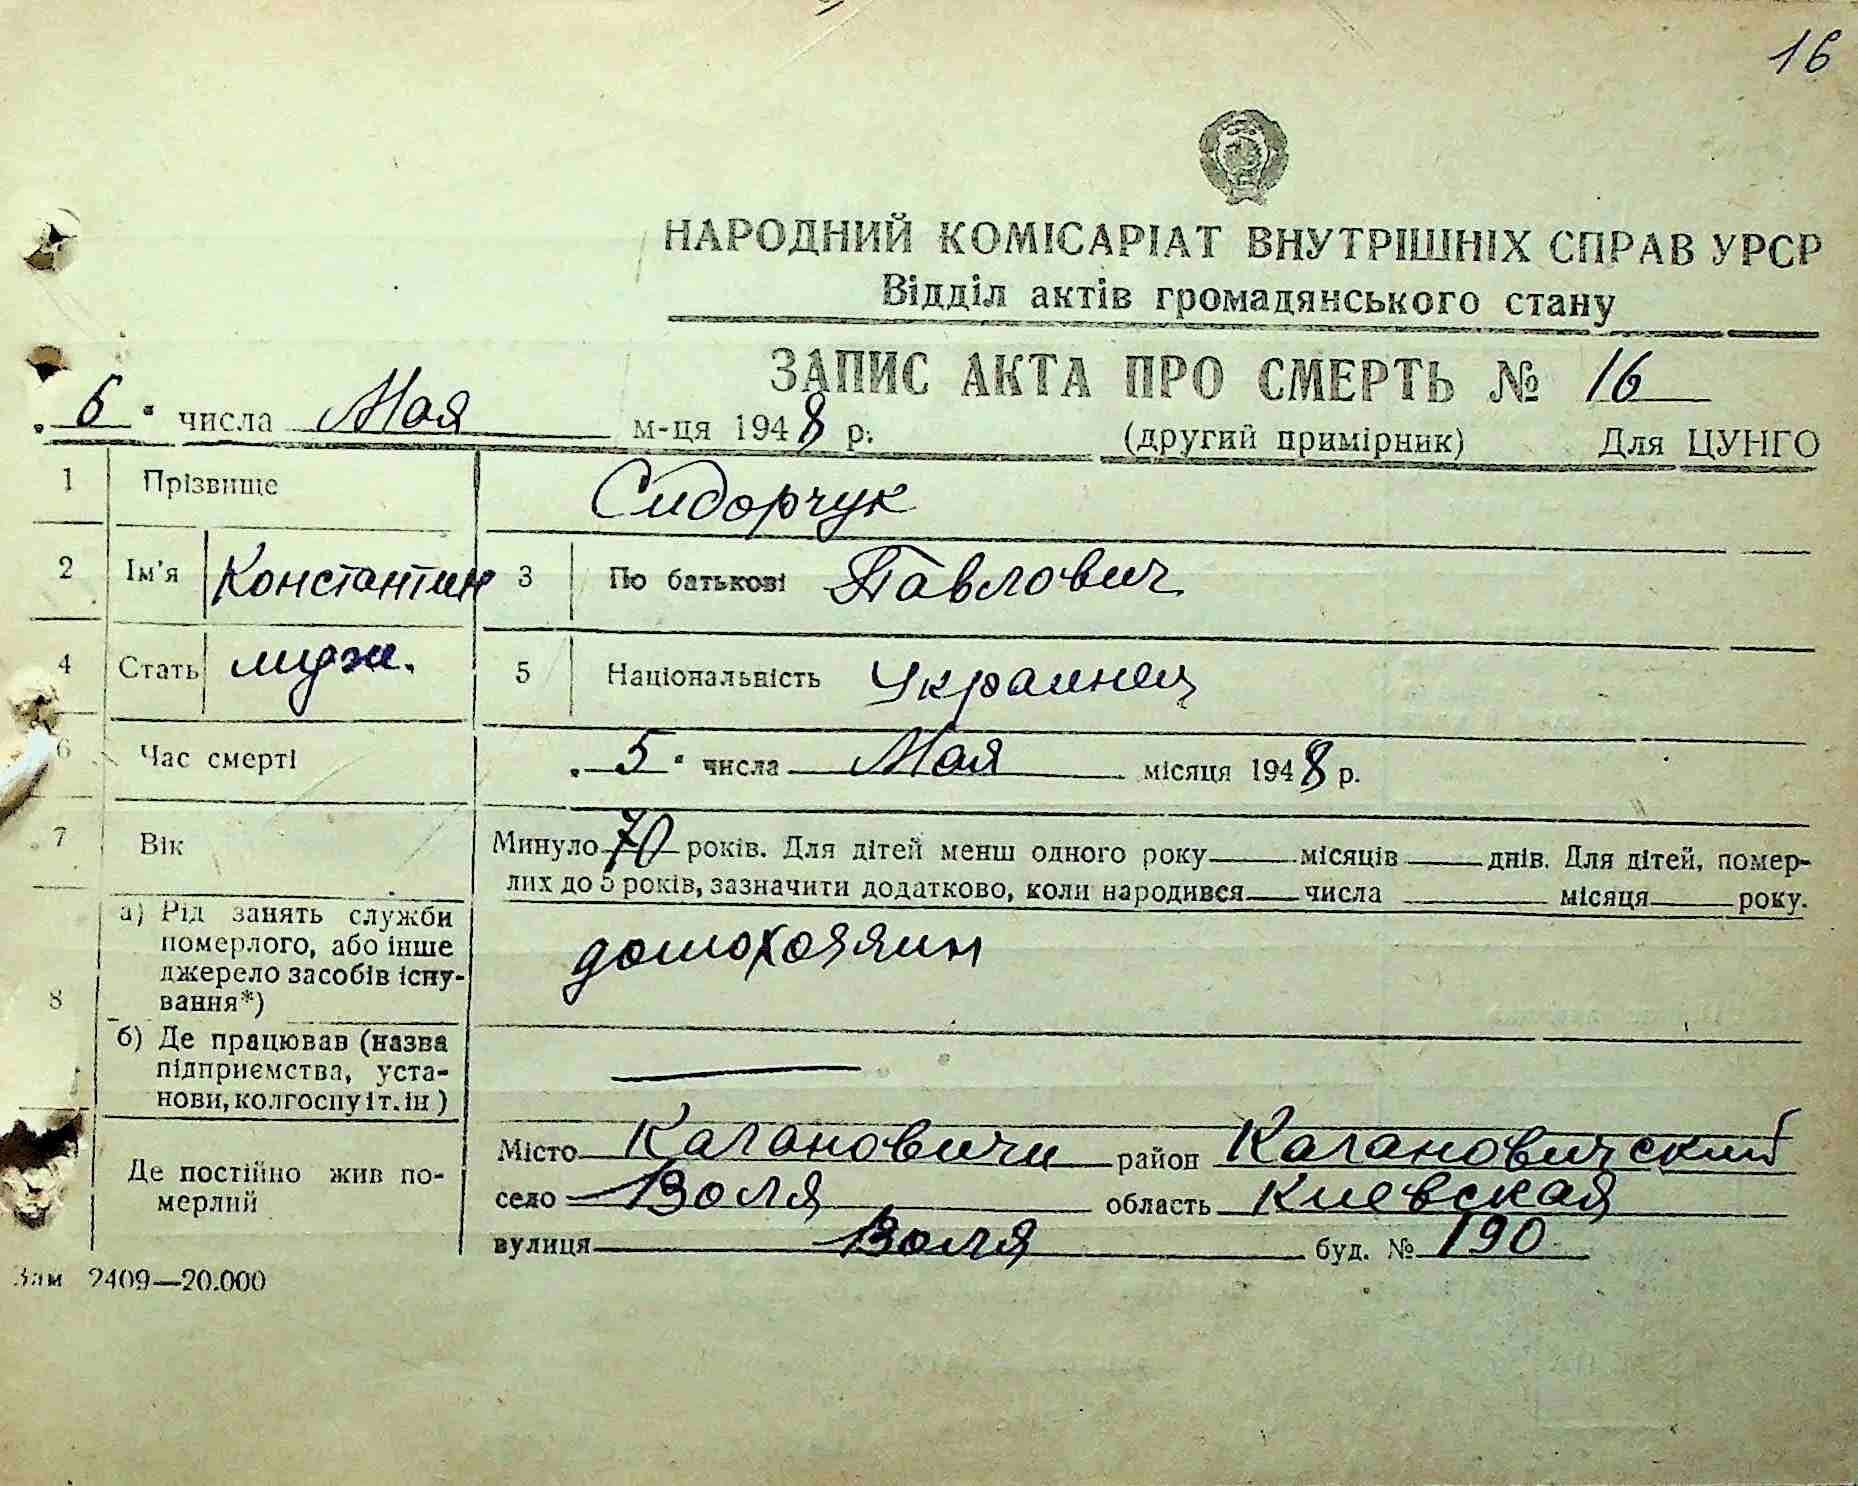 16
НАРОДНИЙ КОМІСАРІАТ ВНУТРІШНІХ СПРАВ УРСР
Відділ актів громадянського стану
ЗАПИС АКТА ПРО СМЕРТЬ № 16
„ 6 " числа Мая м-ця 1948 р. (другий примірник) Для ЦУНГО
1 Прізвище Сидорчук
2 Ім'я Константин 3 По батькові Павлович
4 Стать мужж. 5 Національність Украинец
6 Час смерті „ 5 " числа Мая місяця 1948 р.
7 Вік Минуло 70 років. Для дітей менш одного року місяців днів. Для дітей, помер-
лих до 5 років, зазначити додатково, коли народився числа місяця року.
8 а) Рід занять служби
померлого, або інше
джерело засобів існу-
вання*)
домохозяин
б) Де працював (назва
підприємства, уста-
нови, колгоспу і т. ін )
Де постійно жив по-
мерлий
Місто Кагановичи район Кагановичский
село Воля область Киевская
вулиця Воля буд. № 190
Зам 2409—20.000